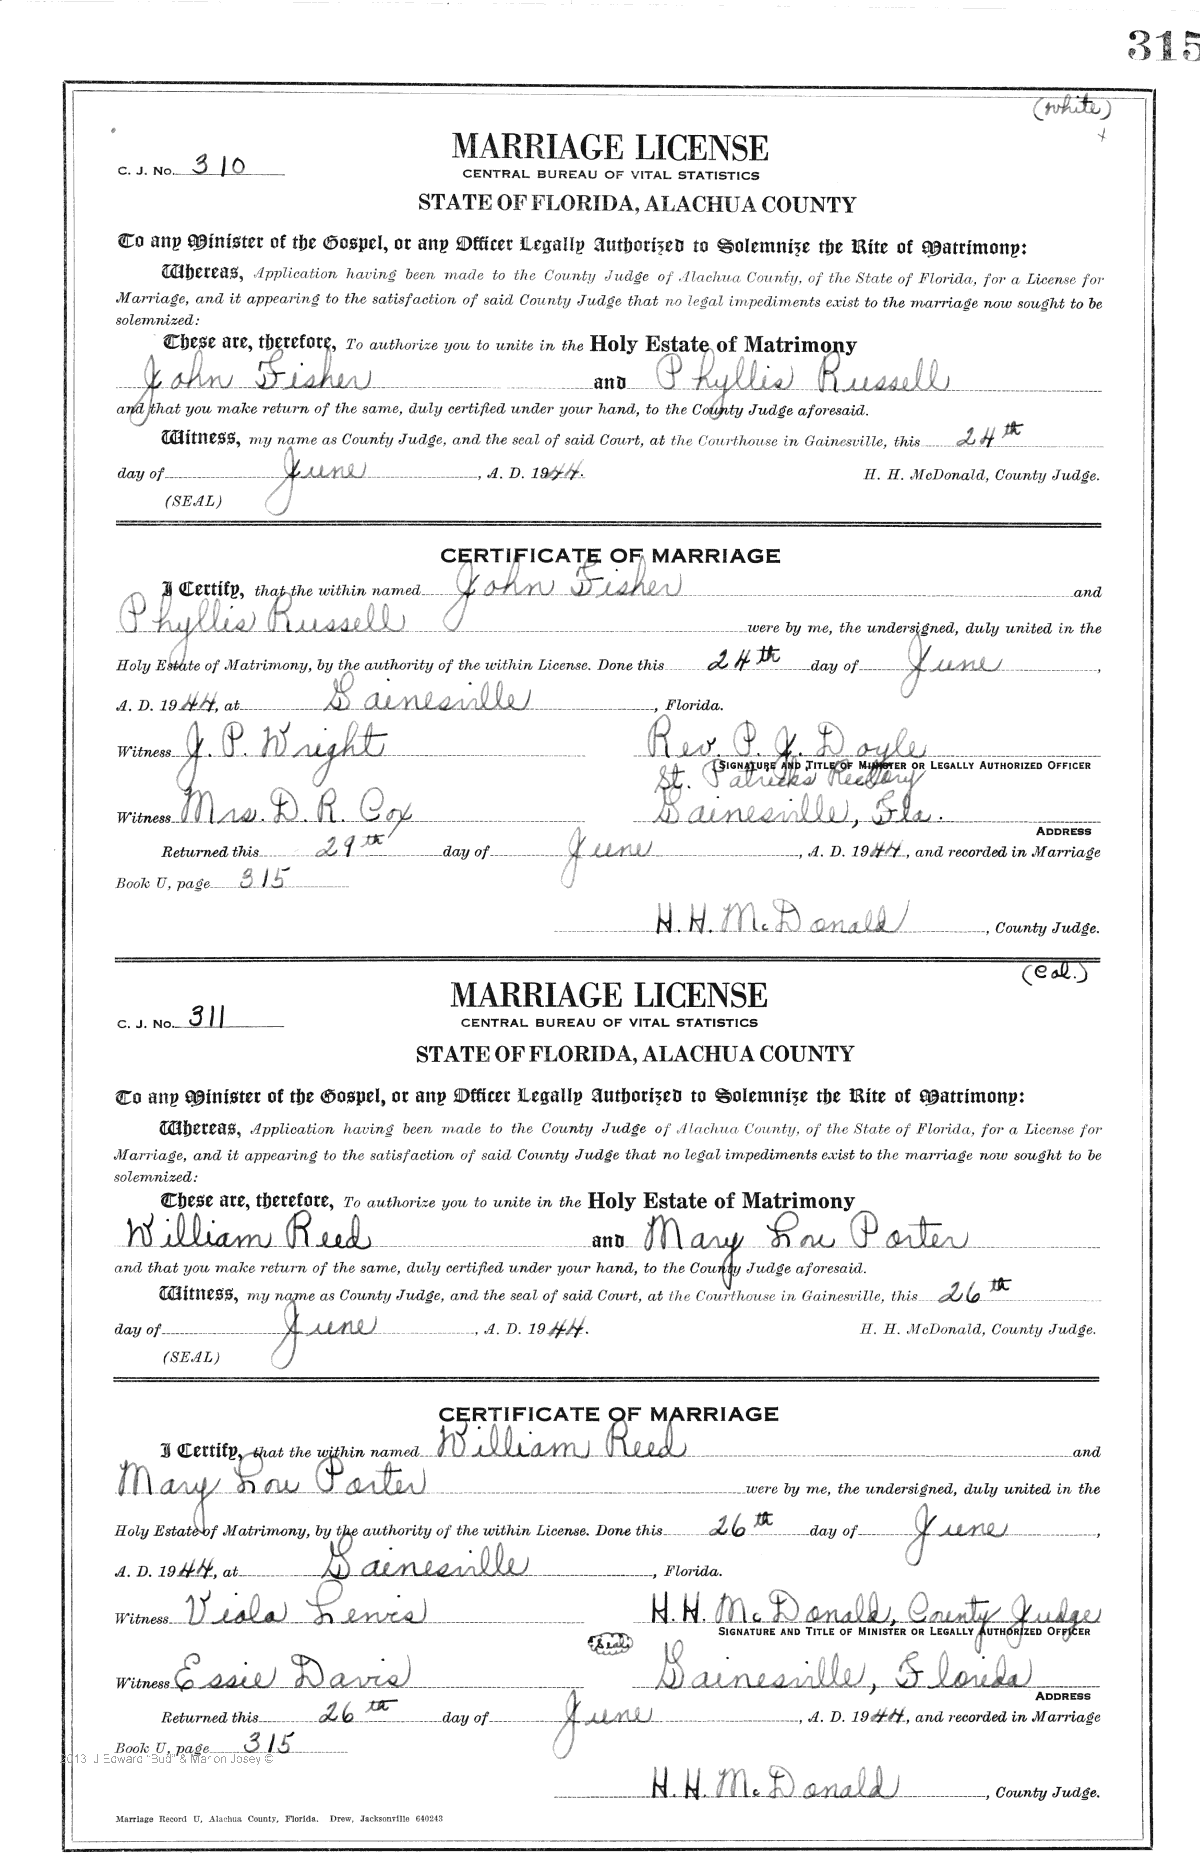 315
(white)
+
MARRIAGE LICENSE
C. J. No. 310
CENTRAL BUREAU OF VITAL STATISTICS
STATE OF FLORIDA, ALACHUA COUNTY
To any Minister of the Gospel, or any Officer Legally Authorized to Solemnize the Rite of Matrimony:
Whereas, Application having been made to the County Judge of Alachua County, of the State of Florida, for a License for
Marriage, and it appearing to the satisfaction of said County Judge that no legal impediments exist to the marriage now sought to be
solemnized:
These are, therefore, To authorize you to unite in the Holy Estate of Matrimony
John Fisher and Phyllis Russell
and that you make return of the same, duly certified under your hand, to the County Judge aforesaid.
Witness, my name as County Judge, and the seal of said Court, at the Courthouse in Gainesville, this 24th
day of June, A. D. 1944. H. H. McDonald, County Judge.
(SEAL)
CERTIFICATE OF MARRIAGE
I Certify, that the within named John Fisher and
Phyllis Russell were by me, the undersigned, duly united in the
Holy Estate of Matrimony, by the authority of the within License. Done this 24th day of June,
A. D. 1944, at Gainesville, Florida.
Witness J. P. Wright Rev. P. J. Doyle
(SIGNATURE AND TITLE OF MINISTER OR LEGALLY AUTHORIZED OFFICER
St. Patricks Rectory
Witness Mrs. D. R. Cox Gainesville, Fla.
ADDRESS
Returned this 29th day of June, A. D. 1944, and recorded in Marriage
Book U, page 315
H. H. McDonald, County Judge.
(Col.)
MARRIAGE LICENSE
C. J. No. 311
CENTRAL BUREAU OF VITAL STATISTICS
STATE OF FLORIDA, ALACHUA COUNTY
To any Minister of the Gospel, or any Officer Legally Authorized to Solemnize the Rite of Matrimony:
Whereas, Application having been made to the County Judge of Alachua County, of the State of Florida, for a License for
Marriage, and it appearing to the satisfaction of said County Judge that no legal impediments exist to the marriage now sought to be
solemnized:
These are, therefore, To authorize you to unite in the Holy Estate of Matrimony
William Reed and Mary Lou Porter
and that you make return of the same, duly certified under your hand, to the County Judge aforesaid.
Witness, my name as County Judge, and the seal of said Court, at the Courthouse in Gainesville, this 26th
day of June, A. D. 1944. H. H. McDonald, County Judge.
(SEAL)
CERTIFICATE OF MARRIAGE
I Certify, that the within named William Reed and
Mary Lou Porter were by me, the undersigned, duly united in the
Holy Estate of Matrimony, by the authority of the within License. Done this 26th day of June,
A. D. 1944, at Gainesville, Florida.
Witness Viola Lewis H. H. McDonald, County Judge
SIGNATURE AND TITLE OF MINISTER OR LEGALLY AUTHORIZED OFFICER
(Seal)
Witness Essie Davis Gainesville, Florida
ADDRESS
Returned this 26th day of June, A. D. 1944, and recorded in Marriage
Book U, page 315
2013 J Edward "Bud" & Marion Josey ©
H. H. McDonald, County Judge.
Marriage Record U, Alachua County, Florida. Drew, Jacksonville 640243